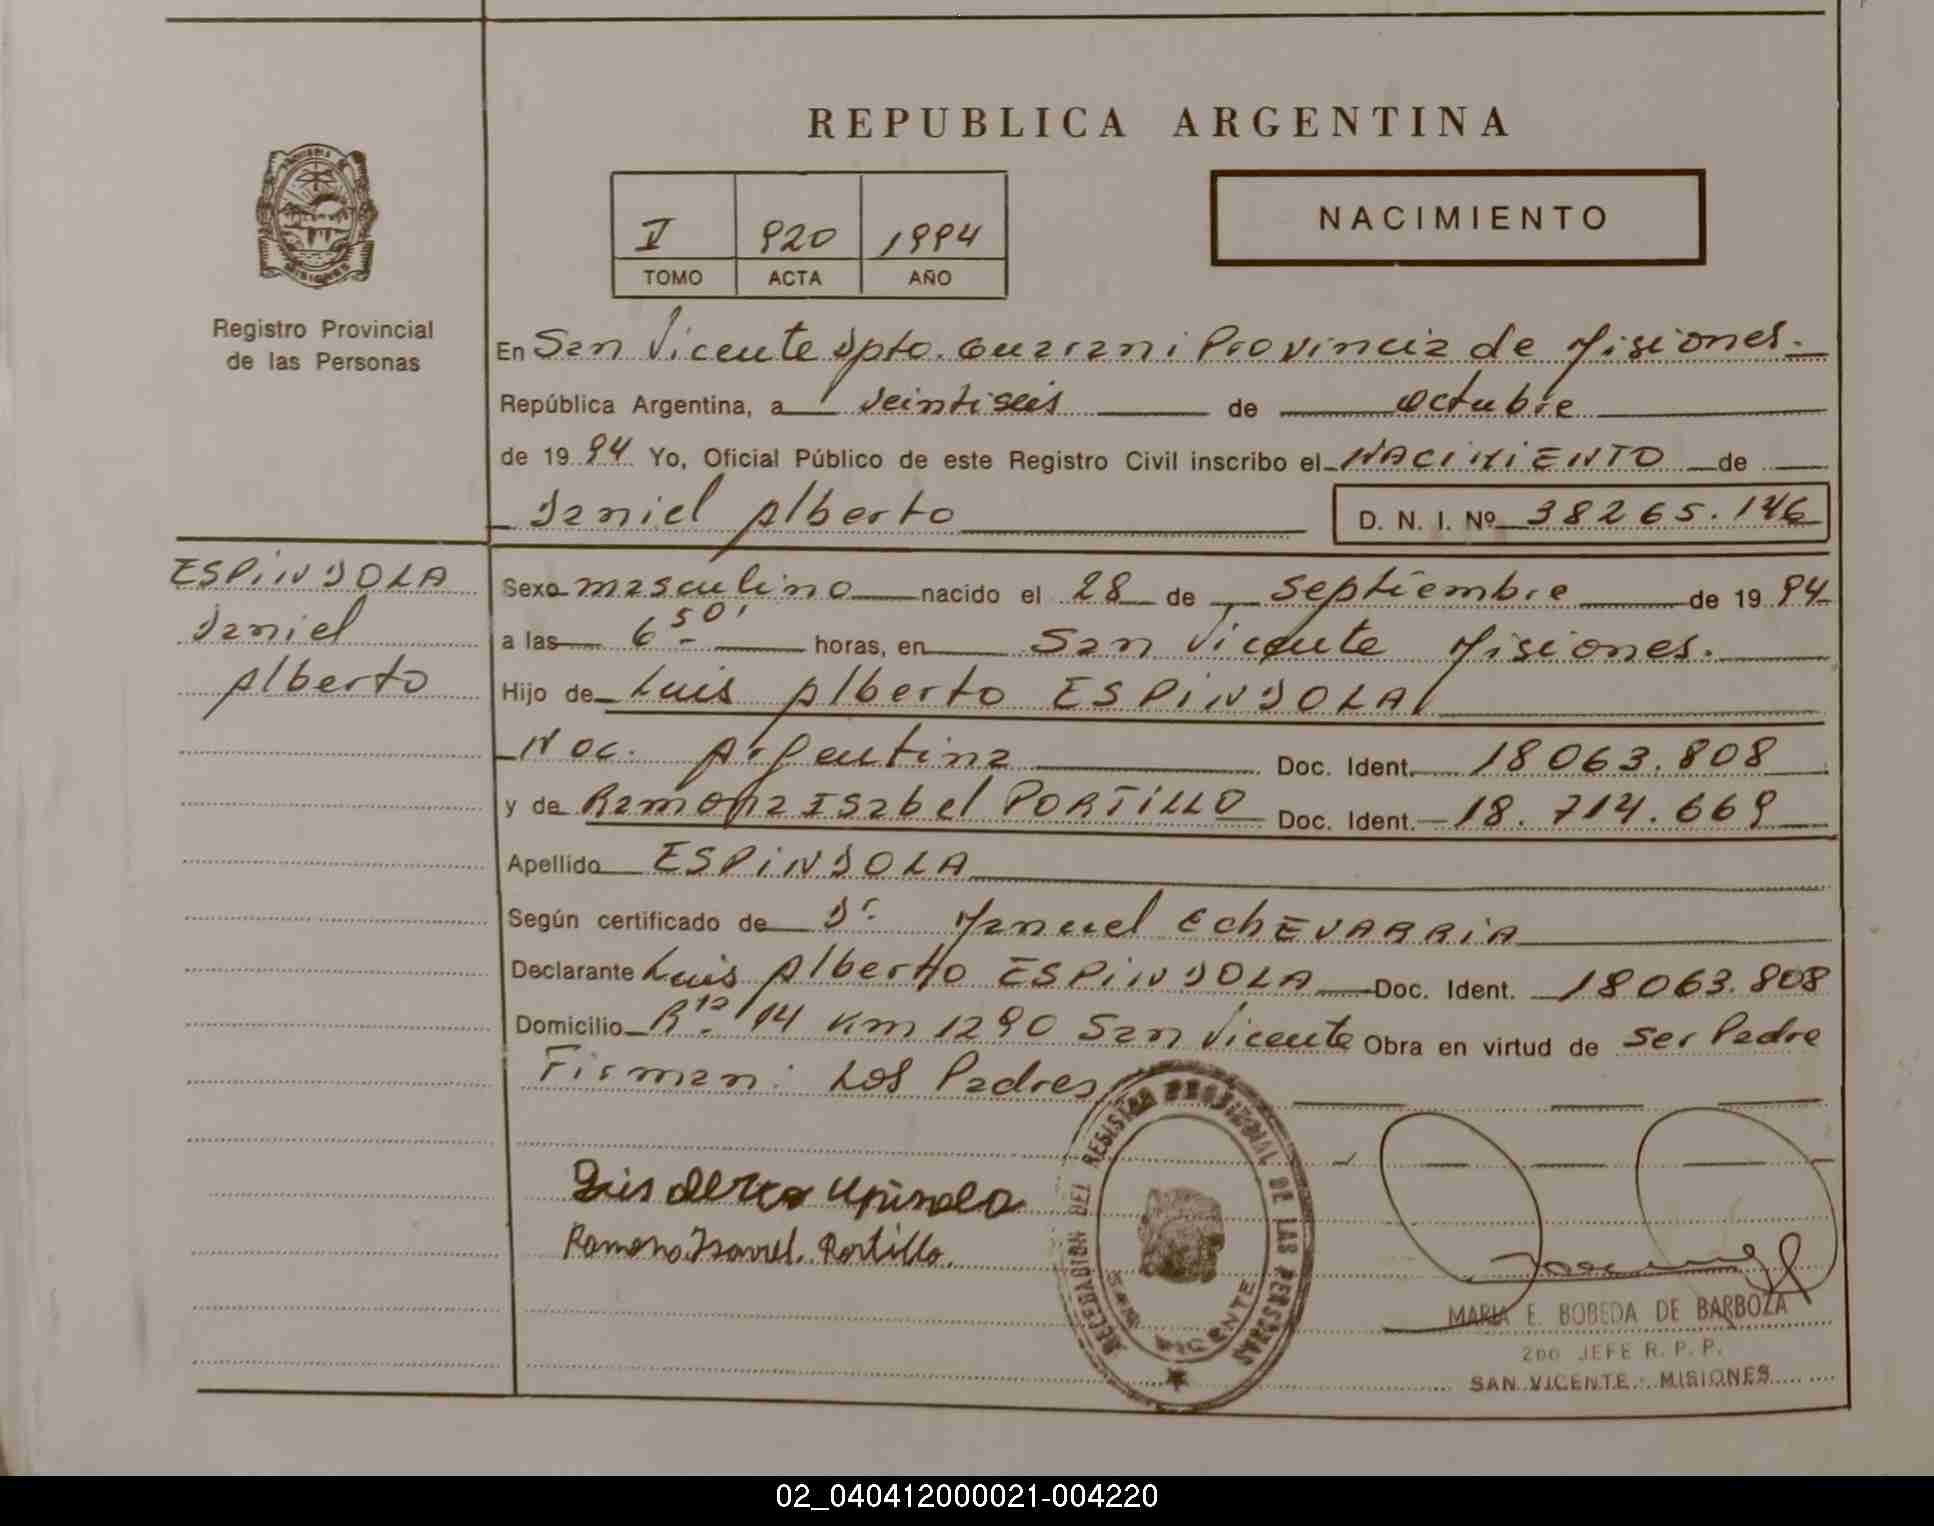 REPUBLICA ARGENTINA
NACIMIENTO
V 920 1994
TOMO ACTA AÑO
Registro Provincial
de las Personas
En San Vicente Dpto. Guarani Provincia de Misiones.
República Argentina, a veintiseis de octubre
de 1994 Yo, Oficial Público de este Registro Civil inscribo el NACIMIENTO de
Daniel Alberto D. N. I. Nº 38265.146
ESPINDOLA
Daniel
Alberto
Sexo masculino nacido el 28 de Septiembre de 1994
a las 6 50' horas, en San Vicente Misiones.
Hijo de Luis Alberto ESPINDOLA
Nac. Argentina Doc. Ident. 18063.808
y de Ramona Isabel PORTILLO Doc. Ident. 18.714.669
Apellido ESPINDOLA
Según certificado de Dr. Manuel EchEVARRIA
Declarante Luis Alberto ESPINDOLA Doc. Ident. 18063.808
Domicilio Rta. 14 Km 1290 San Vicente Obra en virtud de ser Padre
Firman: Los Padres
Ramona Isavel. Portillo.
REGISTRO PROVINCIAL DE LAS PERSONAS
VICENTE
MARIA E. BOBEDA DE BARBOZA
2do JEFE R. P. P.
SAN VICENTE - MISIONES
02_040412000021-004220